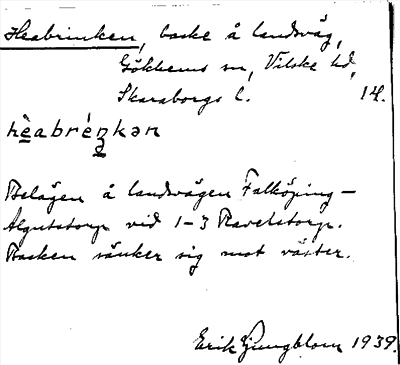 Heabrinken, backe å landsväg,
Gökhems sn, Vilske hd,
Skaraborgs l. 14.
hèabrénkən
Belägen å landsvägen Falköping –
Ålgutstorp vid 1–3 Ravelstorp.
Backen sänker sig mot väster.
Erik Ljungblom 1939.